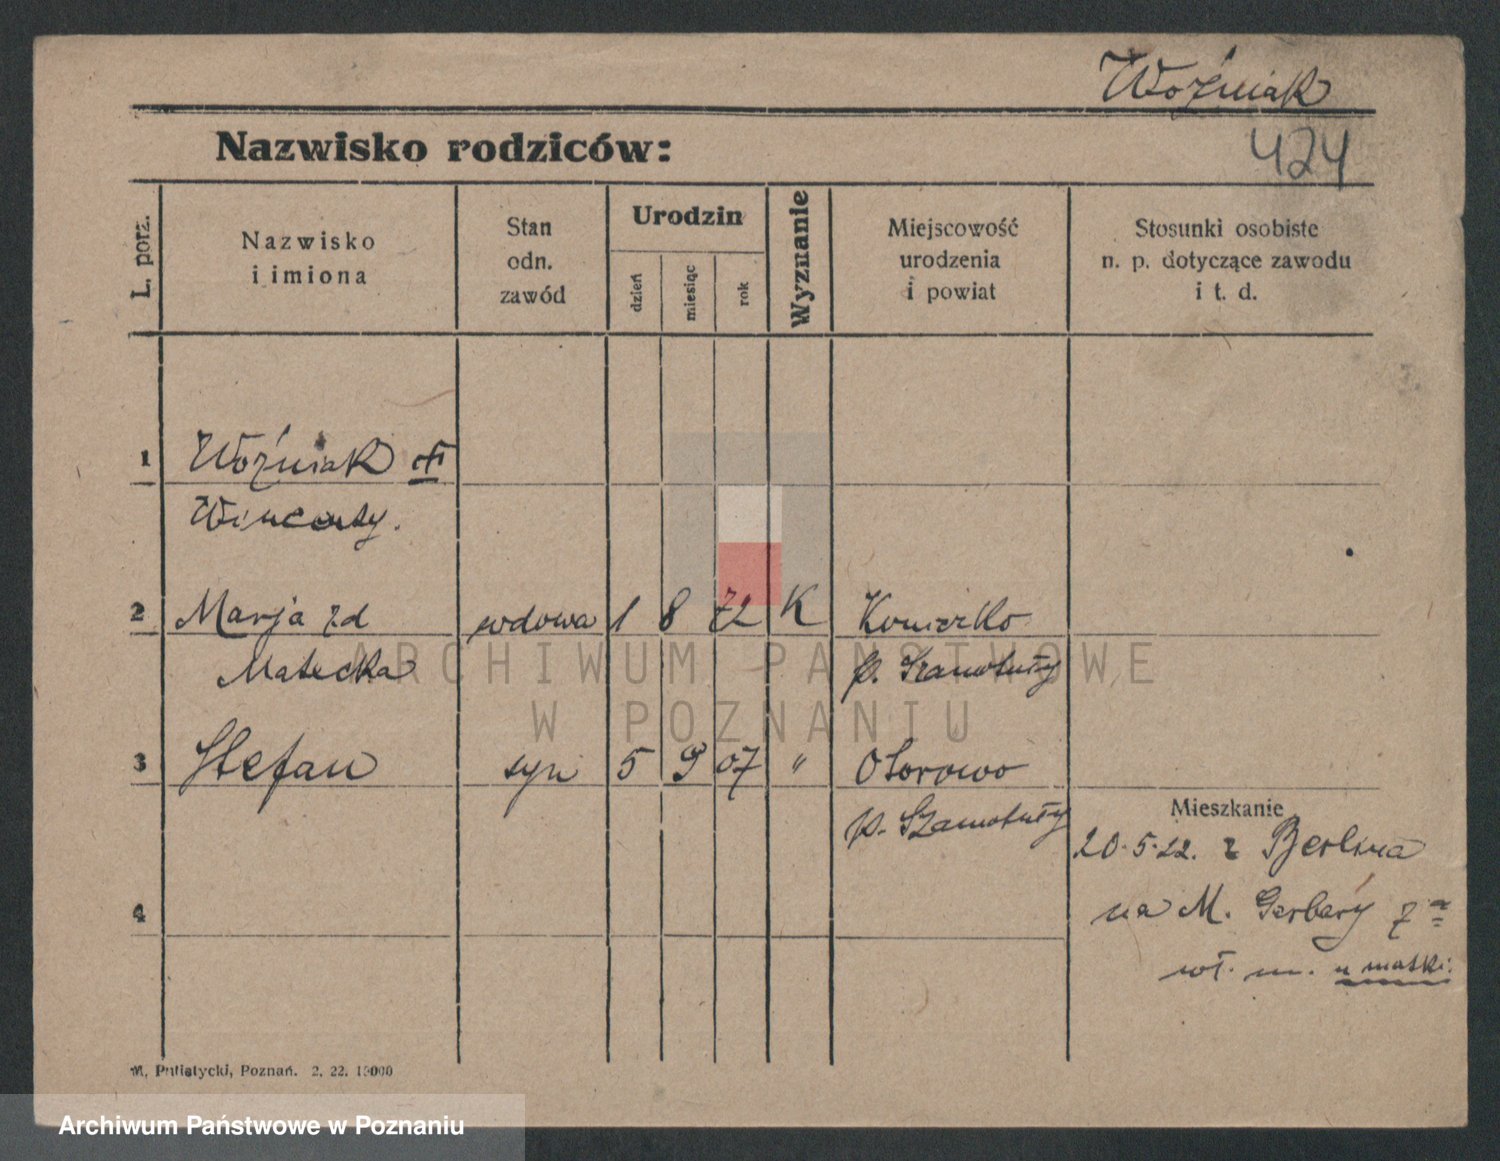 Woźniak
424
Nazwisko rodziców:
L. porz.
Nazwisko
i imiona
Stan
odn.
zawód
Urodzin
dzień
miesiąc
rok
Wyznanie
Miejscowość
urodzenia
i powiat
Stosunki osobiste
n. p. dotyczące zawodu
i t. d.
1 Woźniak
Wincenty.
2 Marja zd wdowa 1 8 72 K Koniczko
Matecka p. Szamotuły
3 Stefan syn 5 9 07 " Otorowo
p. Szamotuły
Mieszkanie
20.5.22. z Berlina
4
na M. Garbary 7a
wł. m. u matki.
M. Putiatycki, Poznań. 2. 22. 15000
ARCHIWUM PAŃSTWOWE
W POZNANIU
Archiwum Państwowe w Poznaniu